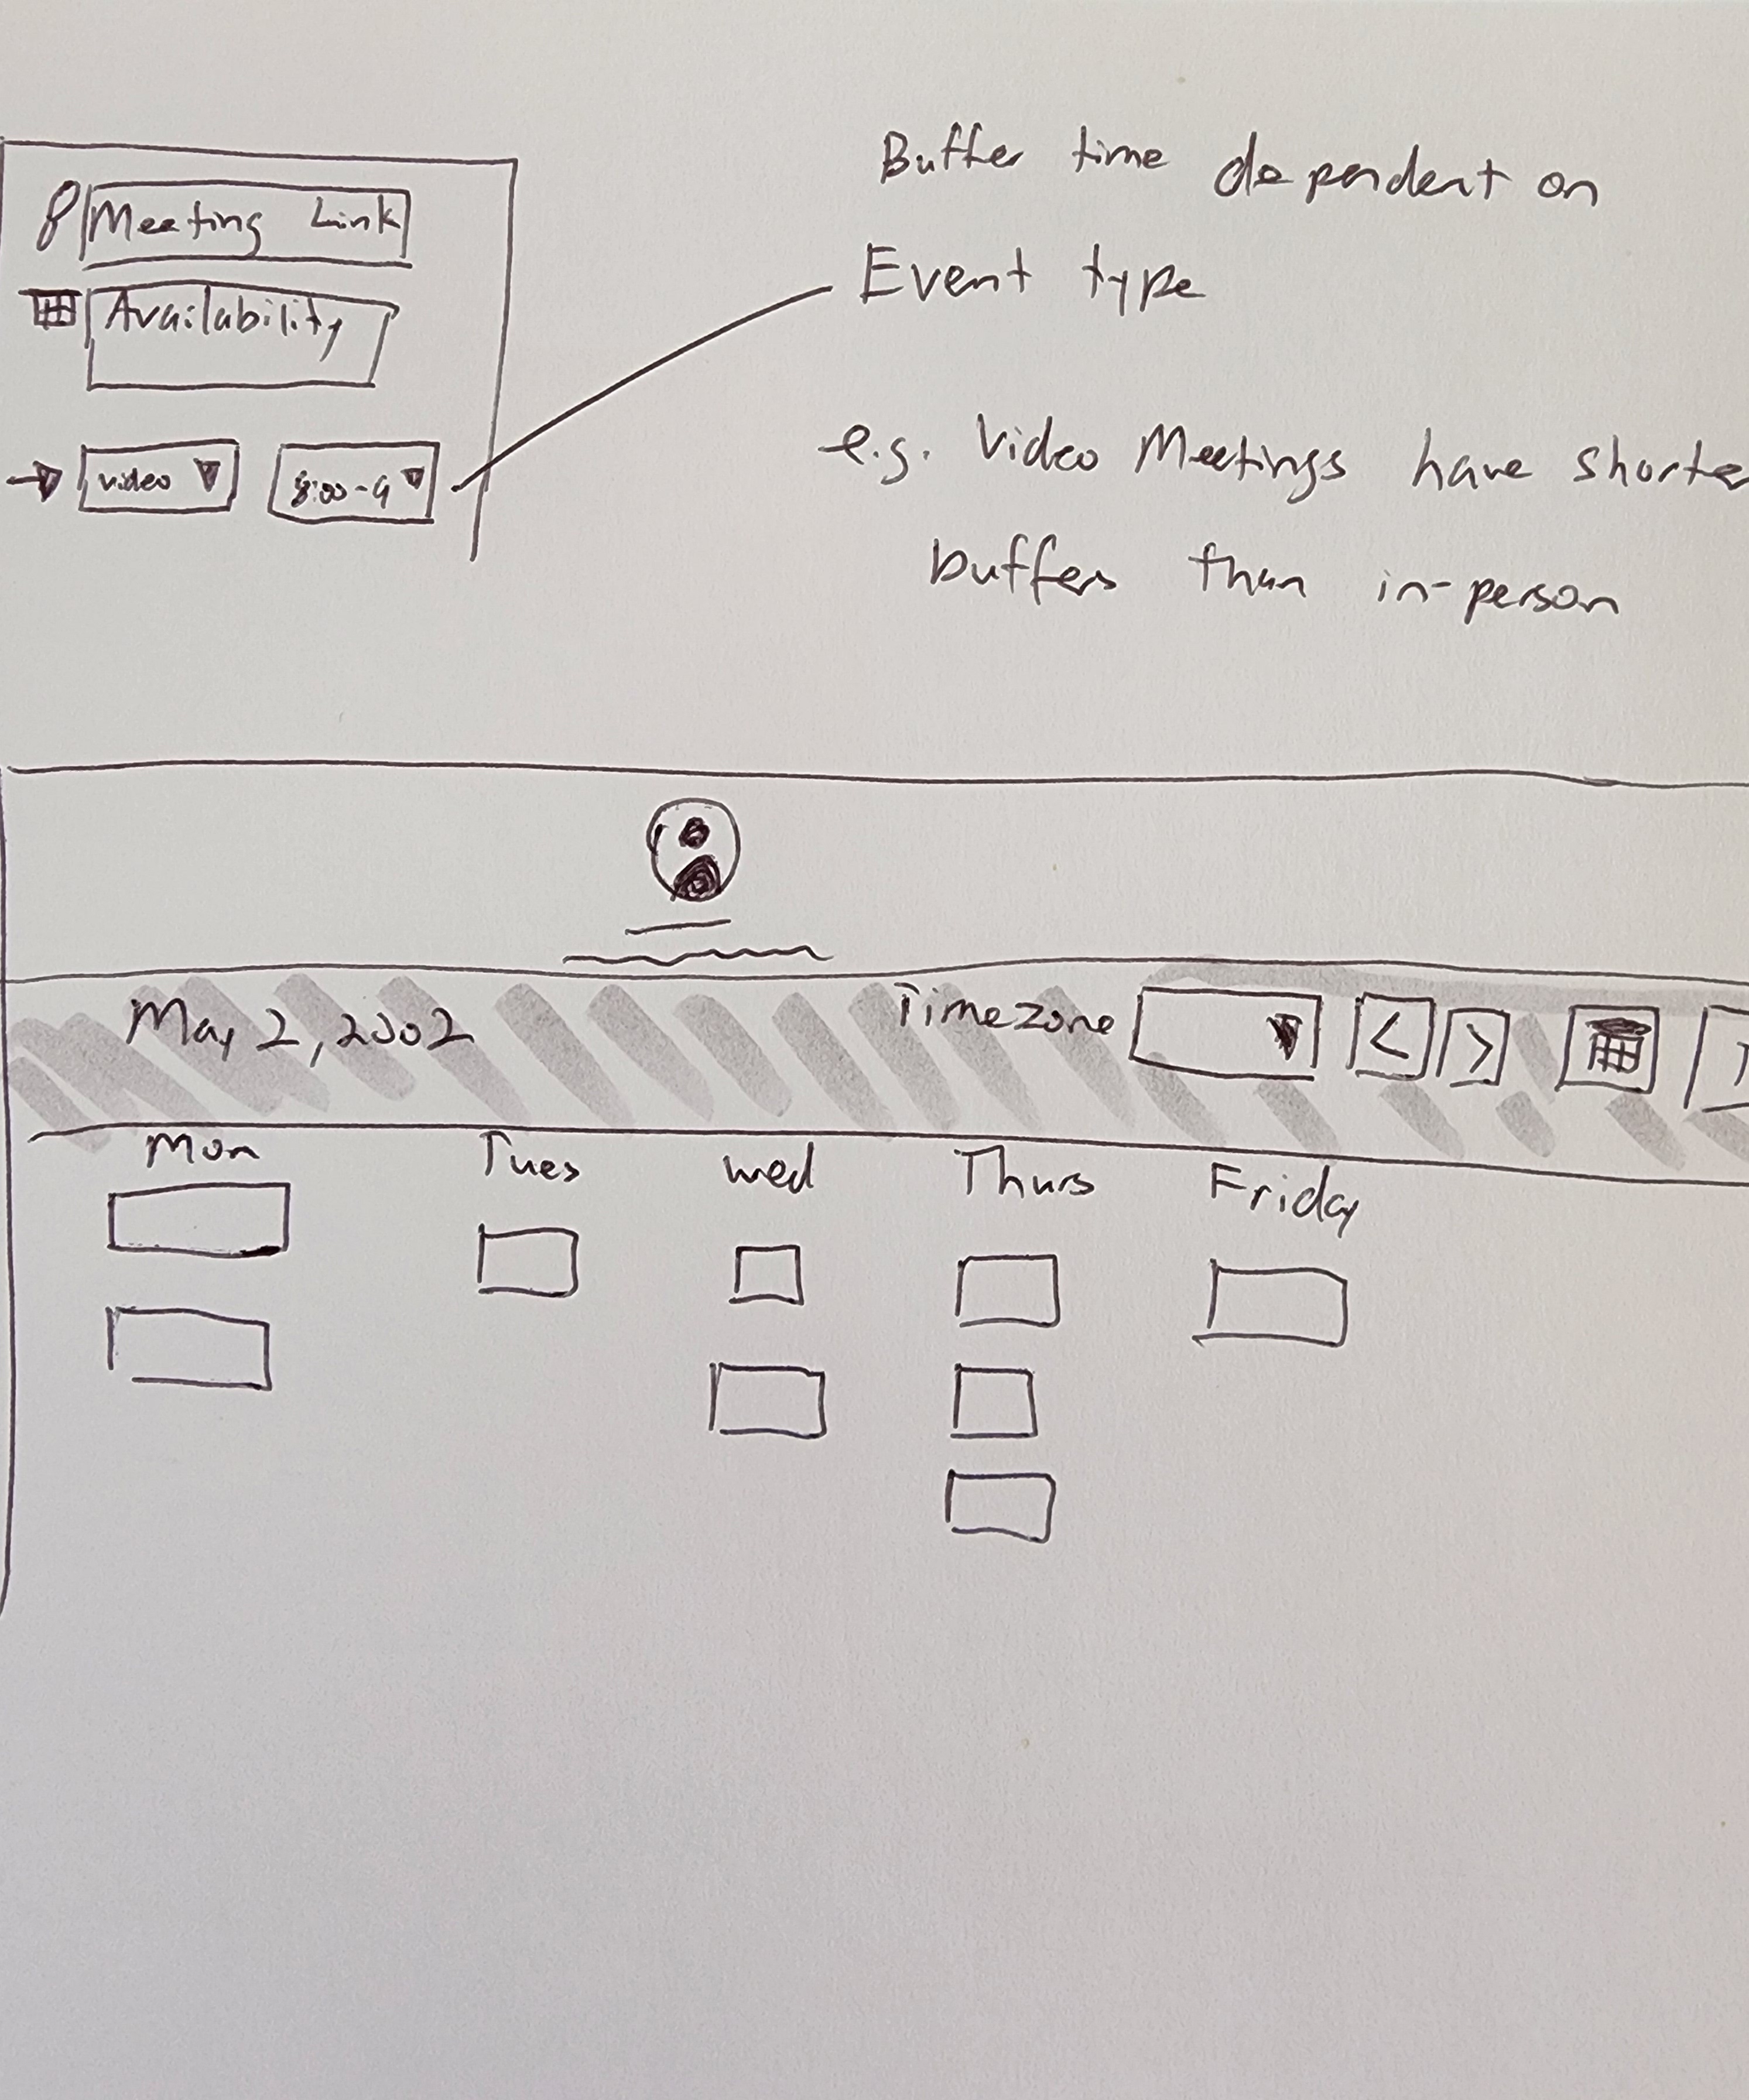 Meeting Link
Availability
video
8:00-9
Buffer time dependent on
Event type
e.g. Video Meetings have shorte
buffers than in-person
May 2, 2002
Timezone
< >
Mon Tues wed Thurs Friday